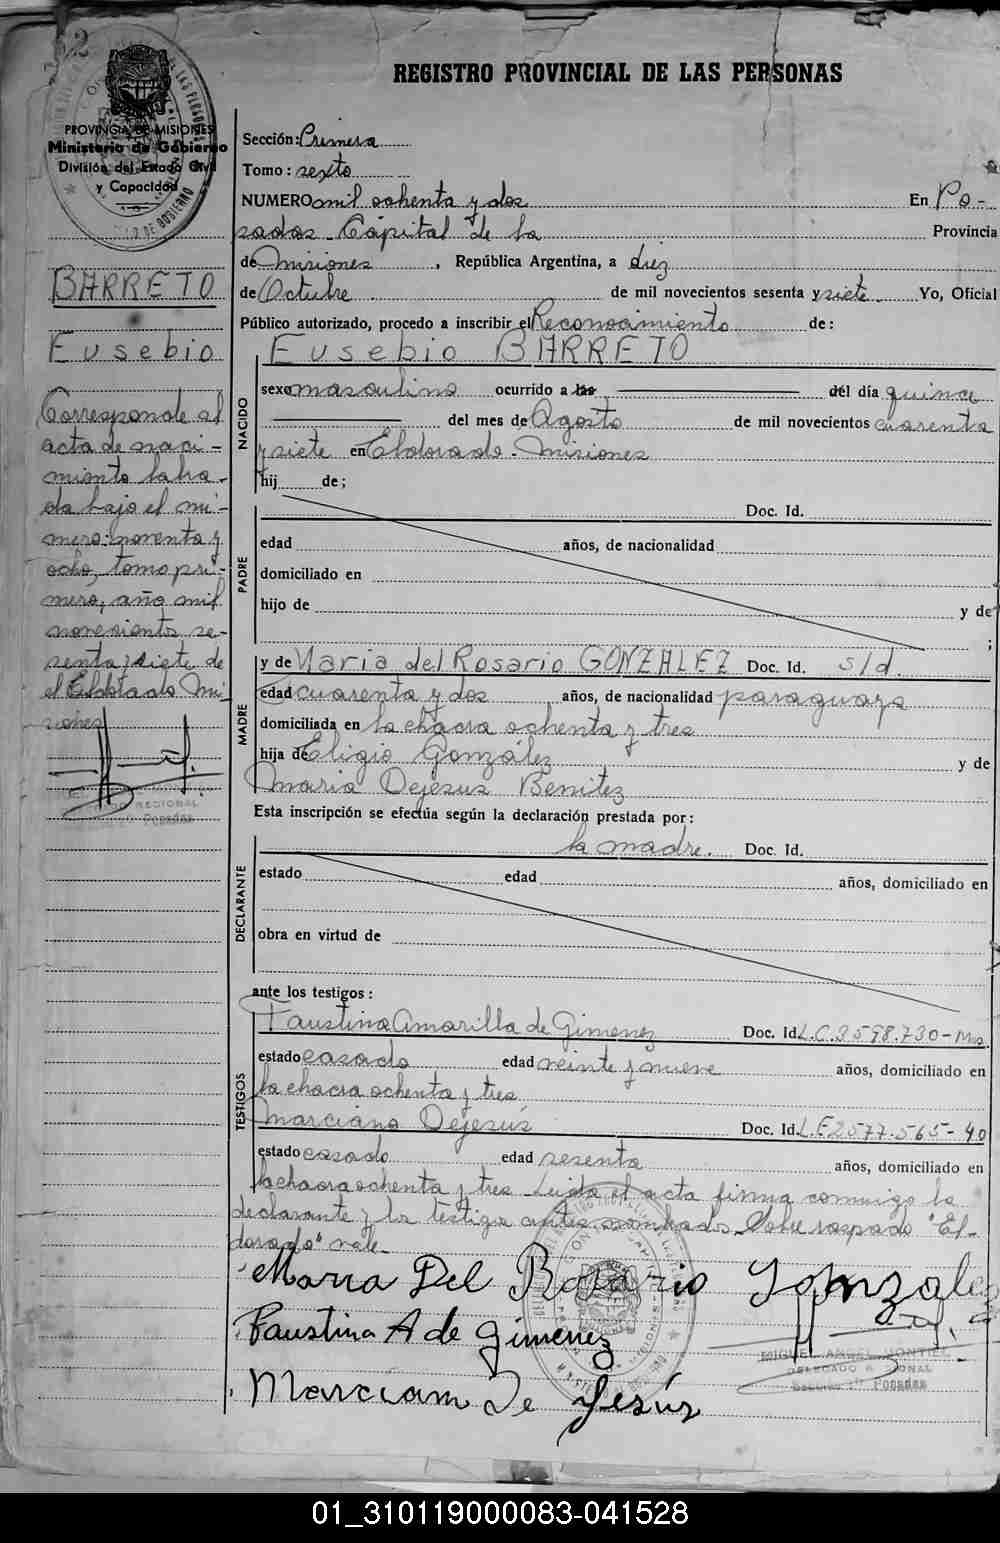 REGISTRO PROVINCIAL DE LAS PERSONAS
PROVINCIA DE MISIONES
Ministerio de Gobierno
División del Estado Civil
y Capacidad
Sección: Primera
Tomo: sexto
NUMERO mil ochenta y dos En Po-
sadas Capital de la Provincia
de Misiones, República Argentina, a diez
de Octubre de mil novecientos sesenta y siete Yo, Oficial
Público autorizado, procedo a inscribir el Reconocimiento de:
BARRETO
Eusebio
Corresponde al
acta de naci-
miento labra-
da bajo el nú-
mero: noventa y
ocho, tomo pri-
mero, año mil
novecientos se-
senta y siete de
el Eldorado Mi-
siones
Eusebio BARRETO
NACIDO
sexo masculino ocurrido a las del día quince
del mes de Agosto de mil novecientos cuarenta
y siete en Eldorado - Misiones
hij de;
PADRE
Doc. Id.
edad años, de nacionalidad
domiciliado en
hijo de y de
;
MADRE
y de Maria del Rosario GONZALEZ Doc. Id. s/d.
edad cuarenta y dos años, de nacionalidad paraguaya
domiciliada en la chacra ochenta y tres
hija de Eligio González y de
Maria Dejesus Benitez
Esta inscripción se efectúa según la declaración prestada por:
DECLARANTE
la madre. Doc. Id.
estado edad años, domiciliado en
obra en virtud de
ante los testigos:
TESTIGOS
Faustina Amarilla de Gimenez Doc. Id. L.C. 3598.730 - Mis.
estado casado edad veinte y nueve años, domiciliado en
la chacra ochenta y tres
Marciano Dejesús Doc. Id. L.E 2577.565-40
estado casado edad sesenta años, domiciliado en
la chacra ochenta y tres Leida el acta firma conmigo la
declarante y los testigos antes nombrados. Sobre raspado "El-
dorado" vale-
Maria Del Rosario Gonzalez
Faustina A de Gimenez
Marciam De Jesús
MIGUEL ANGEL MONTIEL
DELEGADO REGIONAL
Posadas
01_310119000083-041528